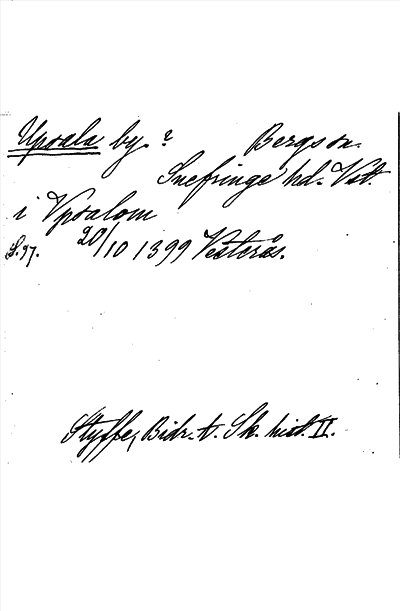 Upsala by. ? Bergs sn.
Snefringe hd. Vstl.
i Vpsalom
S. 97. 20/10 1399 Vesterås.
Styffe, Bidr. t. Sk. hist. II.